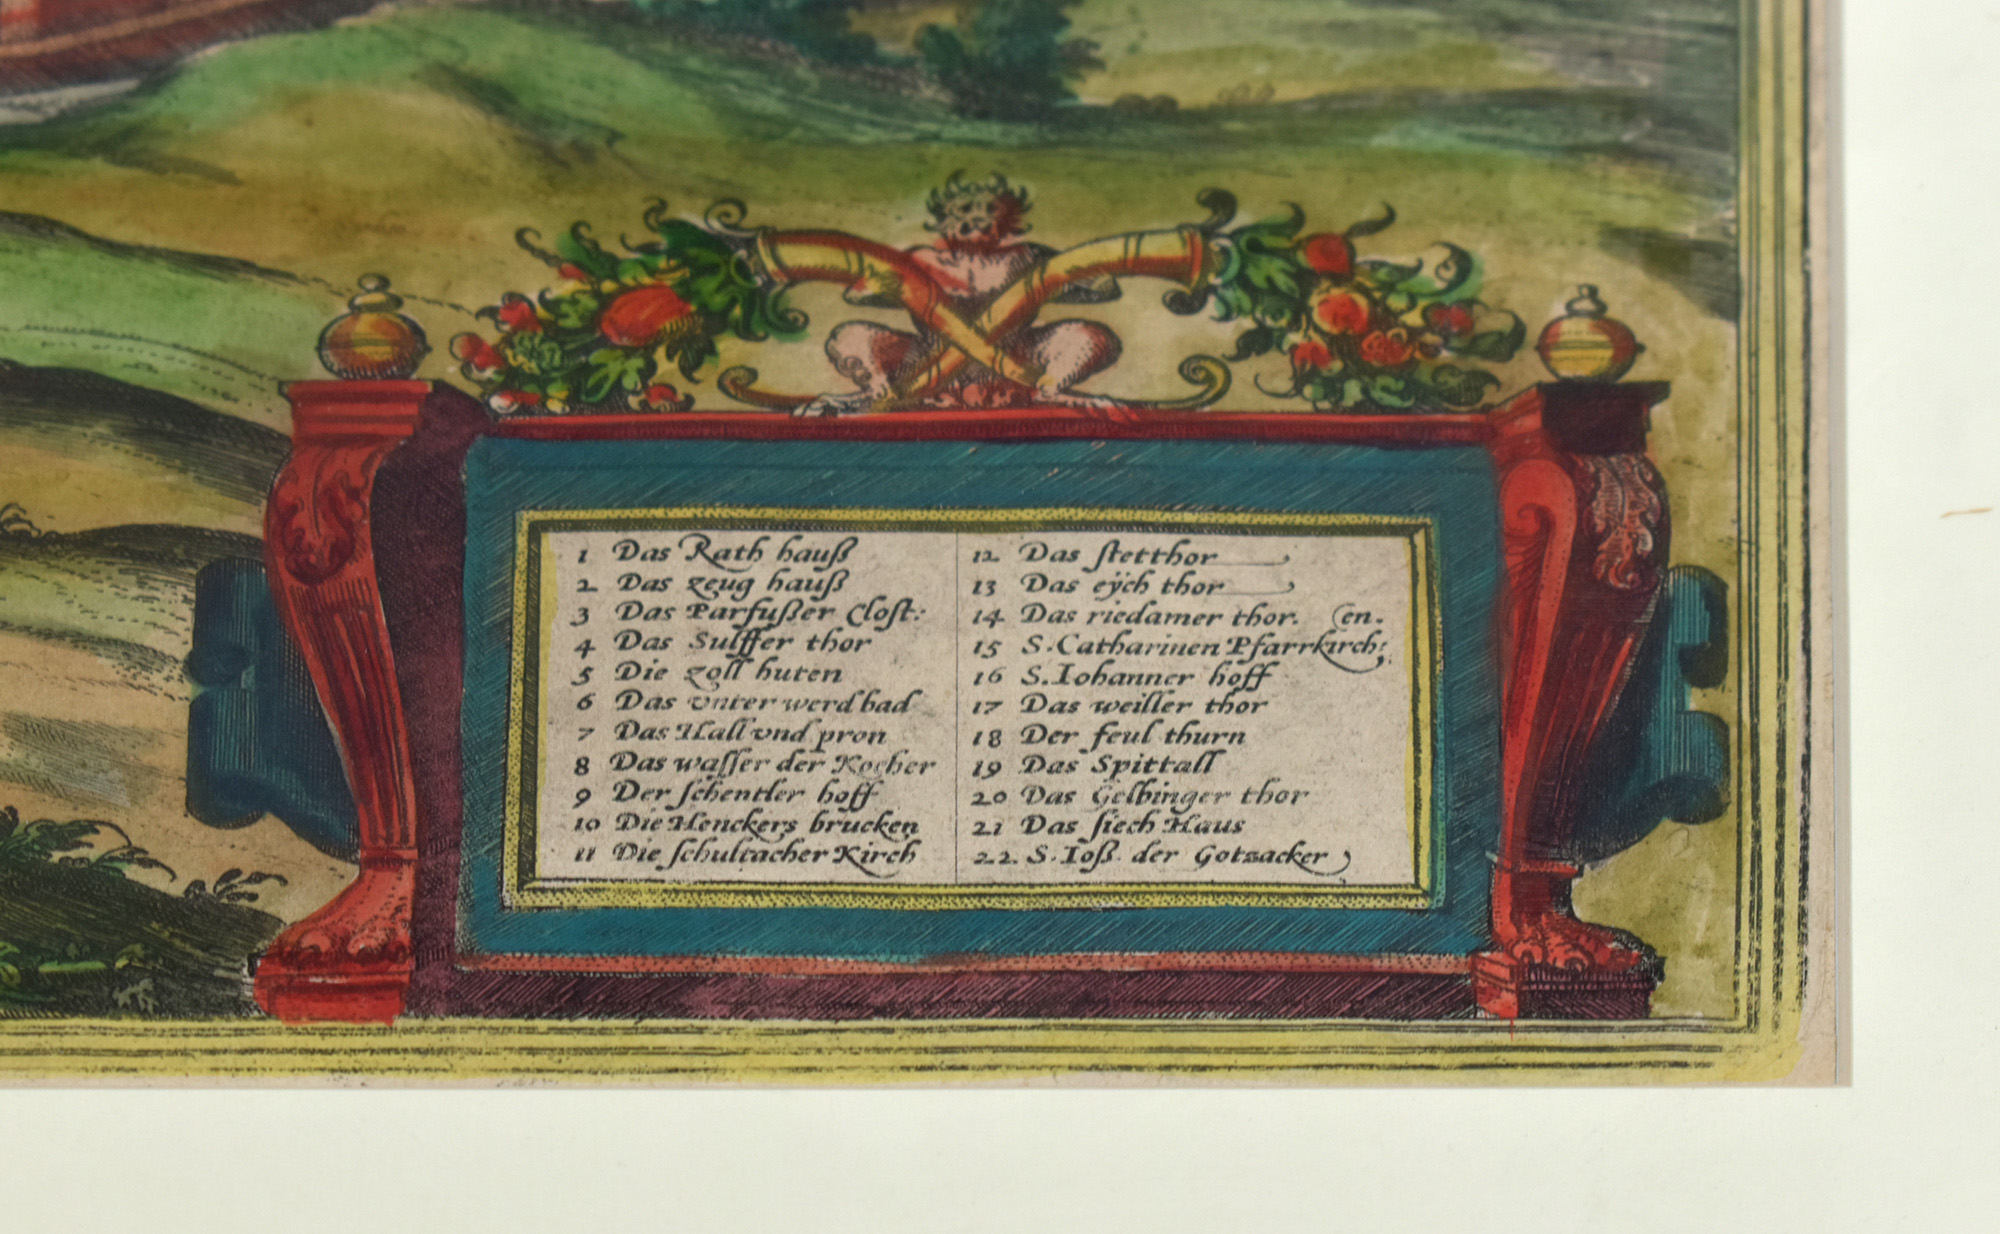 1 Das Rath hauß
2 Das zeug hauß
3 Das Parfußer Clost:
4 Das Sulffer thor
5 Die zoll huten
6 Das vnter werd bad
7 Das Hall vnd pron
8 Das wasser der Kocher
9 Der schentler hoff
10 Die Henckers brucken
11 Die schultacher Kirch
12 Das stetthor
13 Das eÿch thor
14 Das riedamer thor. en.
15 S. Catharinen Pfarrkirch:
16 S. Iohanner hoff
17 Das weiller thor
18 Der feul thurn
19 Das Spittall
20 Das Gelbinger thor
21 Das siech Haus
22. S. Ioß. der Gotzacker